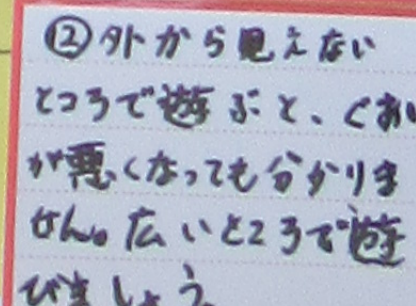 ⑫外から見えない
ところで遊ぶと、ぐあい
が悪くなっても分かりま
せん。広いところで遊
びましょう。